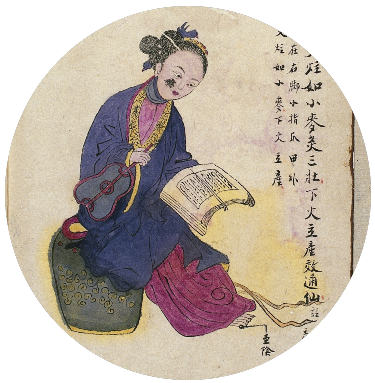 炷如小麥灸三壯下火立產效通仙
在右脚小指爪甲外
炷如小麥下火立產
至陰